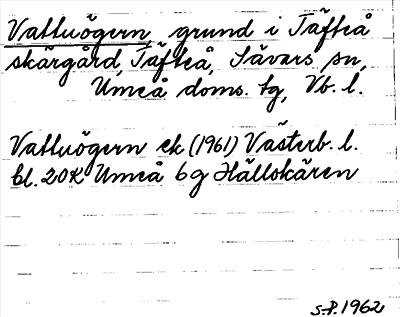 Vattuögern, grund i Täfteå
skärgård, Täfteå, Sävars sn,
Umeå doms. tg, Vb. l.
Vattuögern ek (1961) Västerb. l.
bl. 20K Umeå 6g Hällskären
S-P. 1962